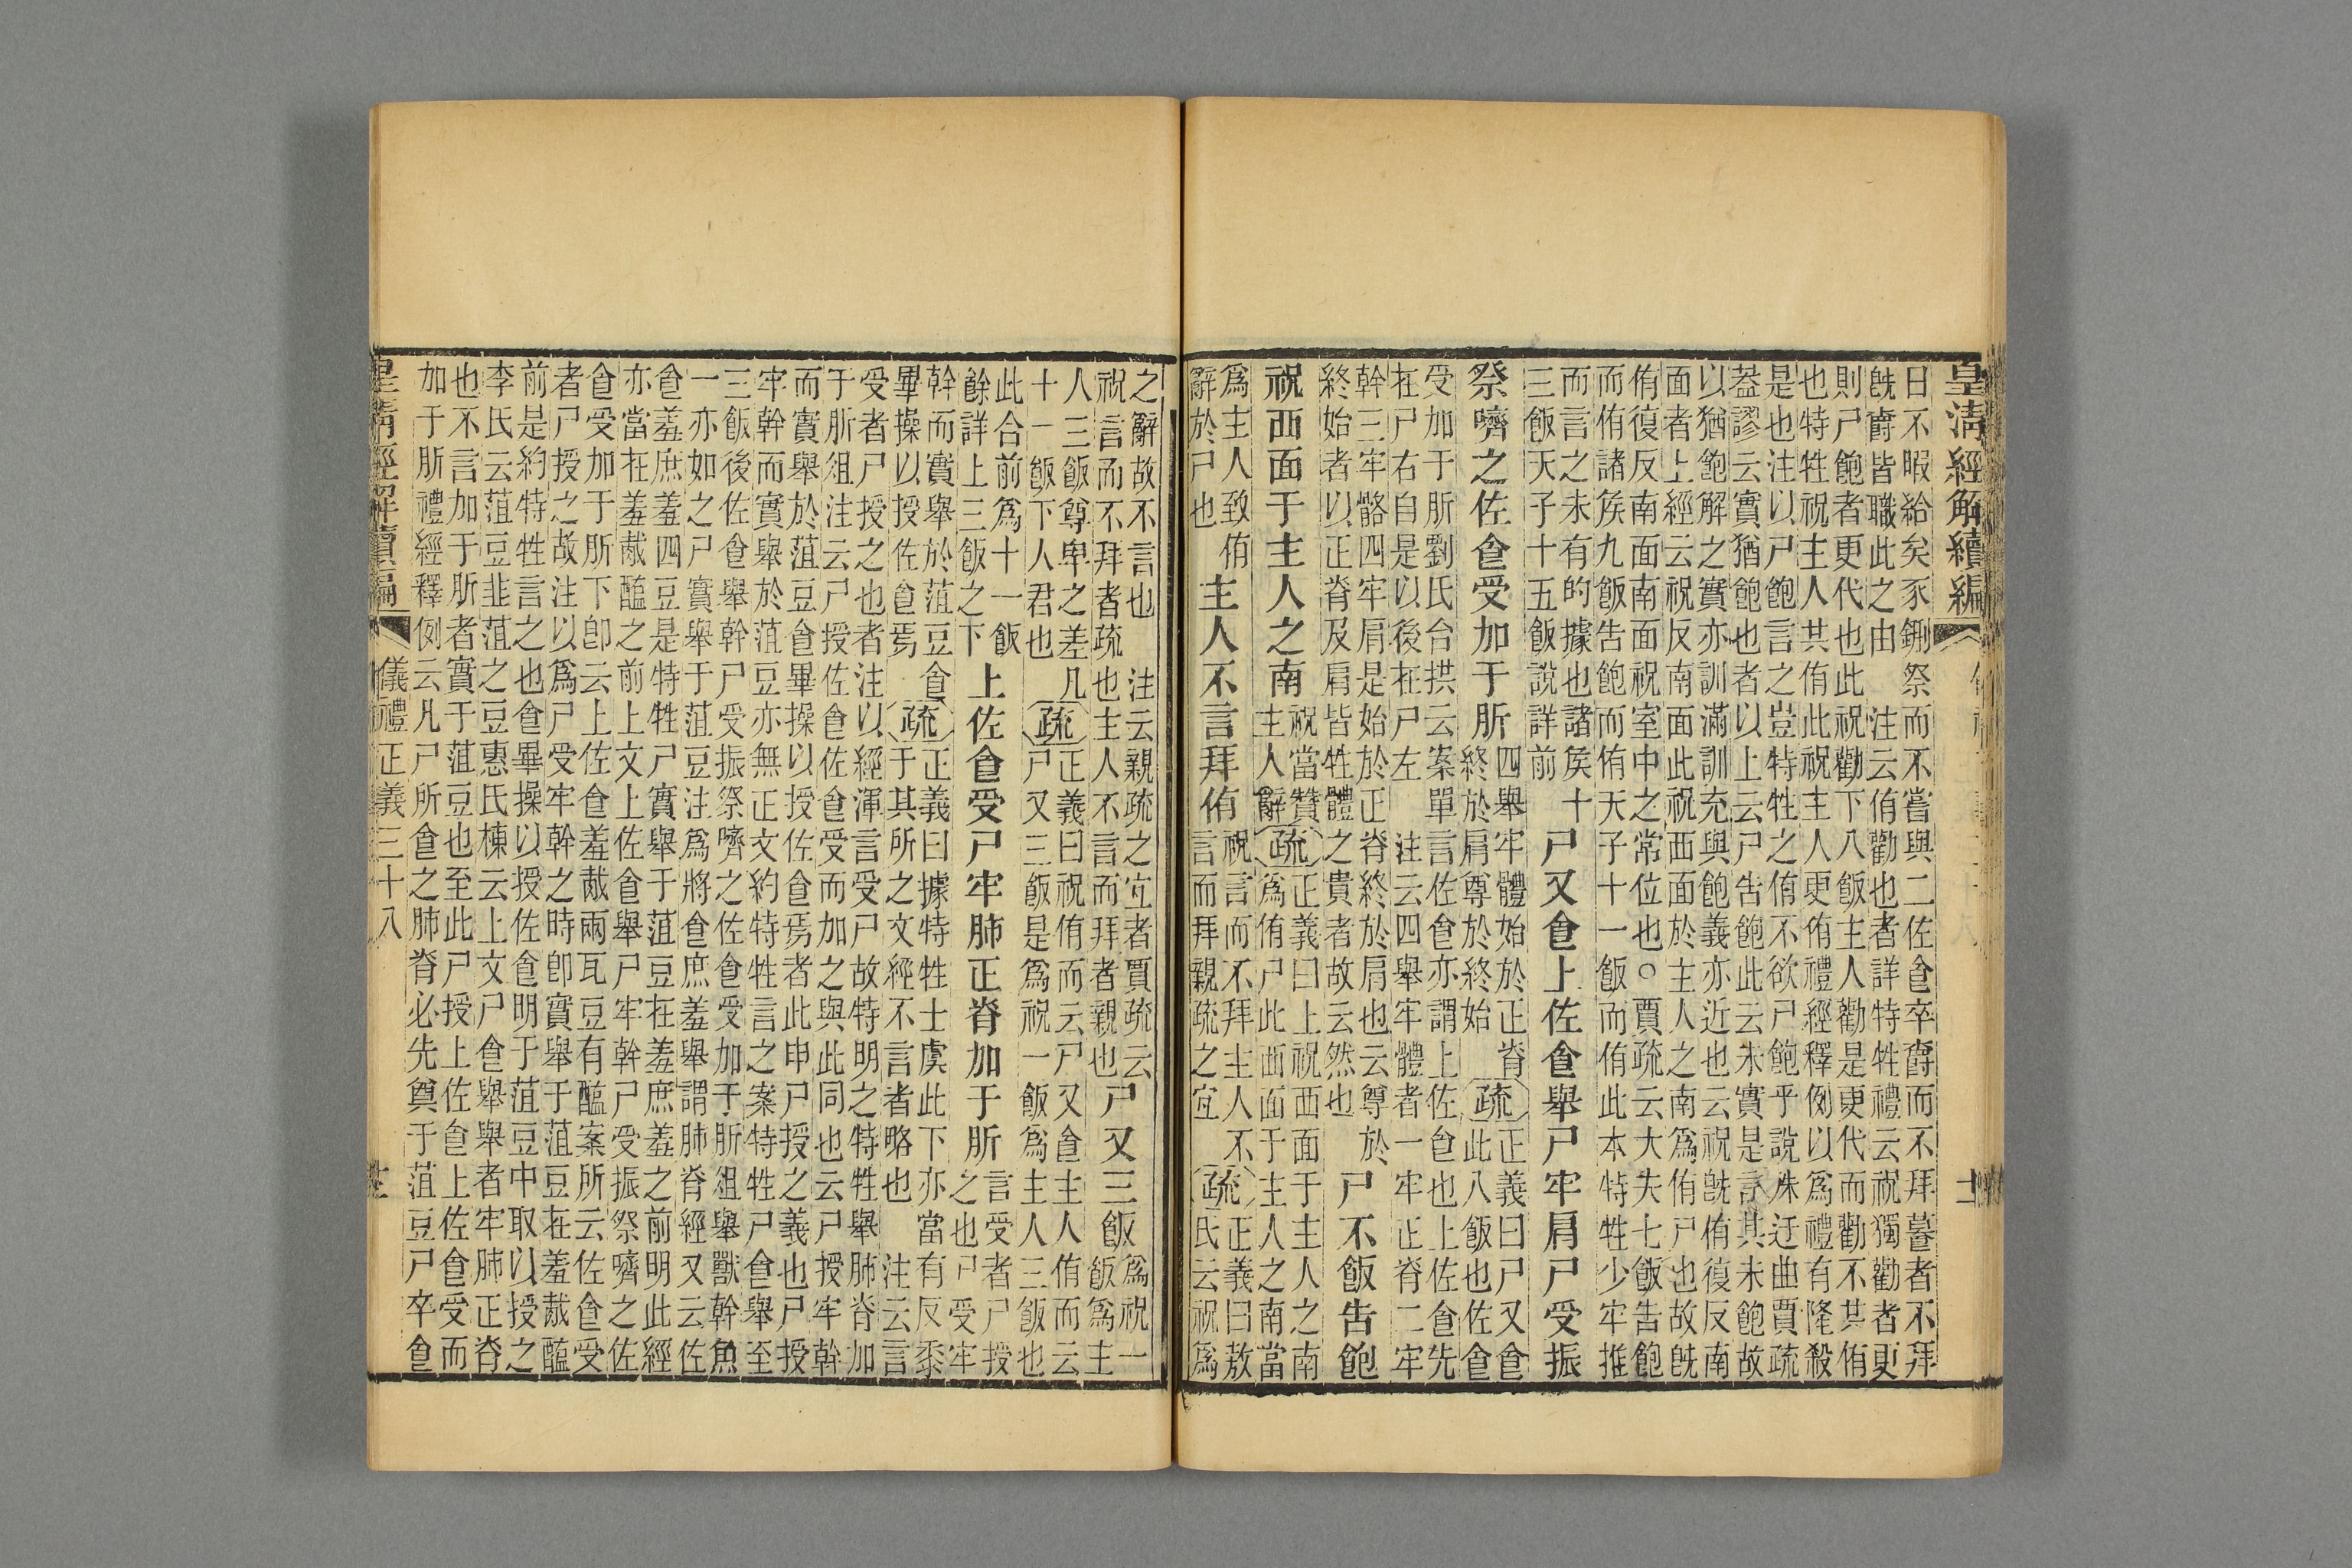 皇清經解續編
日不暇給矣豕鉶祭而不嘗與二佐食卒爵而不拜暮者不拜
旣爵皆職此之由　注云侑勸也者詳特牲禮云祝獨勸者更
則尸飽者更代也此祝勸下八飯主人勸是更代而勸不其侑
也特牲祝主人其侑此祝主人更侑禮經釋例以爲禮有隆殺
是也注以尸飽言之豈特牲之侑不欲尸飽乎說殊迂曲賈疏
葢謬云實猶飽也者以上云尸告飽此云未實是言其未飽故
以猶飽解之實亦訓滿訓充與飽義亦近也云祝旣侑復反南
面者上經云祝反南面此祝西面於主人之南爲侑尸也故旣
侑復反南面南面祝室中之常位也○賈疏云大夫七飯告飽
而侑諸侯九飯告飽而侑天子十一飯而侑此本特牲少牢推
而言之未有的據也諸侯十
三飯天子十五飯說詳前
尸又食上佐食舉尸牢肩尸受振
祭嚌之佐食受加于肵
四舉牢體始於正脊
終於肩尊於終始
疏
正義曰尸又食
此八飯也佐食
受加于肵劉氏台拱云案單言佐食亦謂上佐食也上佐食先
在尸右自是以後在尸左　注云四舉牢體者一牢正脊二牢
幹三牢骼四牢肩是始於正脊終於肩也云尊於
終始者以正脊及肩皆牲體之貴者故云然也
尸不飯告飽
祝西面于主人之南
祝當贊
主人辭
疏
正義曰上祝西面于主人之南
爲侑尸此西面于主人之南當
爲主人致侑
辭於尸也
主人不言拜侑
祝言而不拜主人不
言而拜親疏之宜
疏
正義曰敖
氏云祝爲
之辭故不言也　注云親疏之宜者賈疏云
祝言而不拜者疏也主人不言而拜者親也
尸又三飯
爲祝一
飯爲主
人三飯尊卑之差凡
十一飯下人君也
疏
正義曰祝侑而云尸又食主人侑而云
尸又三飯是爲祝一飯爲主人三飯也
此合前爲十一飯
餘詳上三飯之下
上佐食受尸牢肺正脊加于肵
言受者尸授
之也尸受牢
幹而實舉於菹豆食
畢操以授佐食焉
疏
正義曰據特牲士虞此下亦當有反黍
于其所之文經不言者略也　注云言
受者尸授之也者注以經渾言受尸故特明之特牲舉肺脊加
于肵俎注云尸授佐食佐食受而加之與此同也云尸授牢幹
而實舉於菹豆食畢操以授佐食焉者此申尸授之義也尸授
牢幹而實舉於菹豆亦無正文約特牲言之案特牲尸食舉至
三飯後佐食舉幹尸受振祭嚌之佐食受加于肵俎舉獸幹魚
一亦如之尸實舉于菹豆注爲將食庶羞舉謂肺脊經又云佐
食羞庶羞四豆是特牲尸實舉于菹豆在羞庶羞之前明此經
亦當在羞胾醢之前上文上佐食舉尸牢幹尸受振祭嚌之佐
食受加于肵下卽云上佐食羞胾兩瓦豆有醢案所云佐食受
者尸授之故注以爲尸受牢幹之時卽實舉于菹豆在羞胾醢
前是約特牲言之也食畢操以授佐食明于菹豆中取以授之
李氏云菹豆韭菹之豆惠氏棟云上文尸食舉舉者牢肺正脊
也不言加于肵者實于菹豆也至此尸授上佐食上佐食受而
加于肵禮經釋例云凡尸所食之肺脊必先奠于菹豆尸卒食
皇清經解續編
儀禮正義三十八